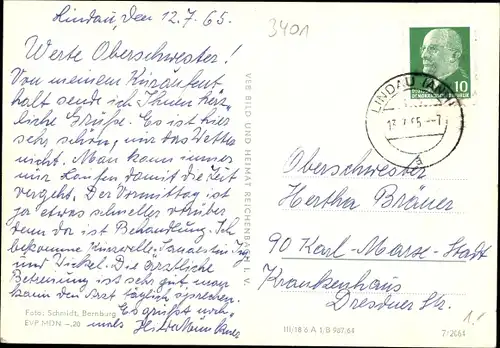 Lindau, den 12.7.65.
Werte Oberschwester!
Von meinem Kuraufent
halt sende ich Ihnen herz-
liche Grüße. Es ist hier
sehr schön, nur das Wetter
nicht. Man kann immer
nur laufen damit die Zeit
vergeht. Der Vormittag ist
ja etwas schneller vorüber
denn da ist Behandlung. Ich
bekomme Kurzwelle,
und Wickel. Die ärztliche
Betreuung ist sehr gut man
kann den Arzt täglich sprechen.
Es grüßt
mals
Foto: Schmidt, Bernburg
EVP MDN –,20
VEB BILD UND HEIMAT REICHENBACH I. V.
III/18 6 A 1/B 967/64
3401
10
LINDAU (ANH)
13.7.65.–7
a
Oberschwester
Hertha Bräuer
90 Karl-Marx-Stadt
Krankenhaus
Dresdner Str.
1.1
7/2064